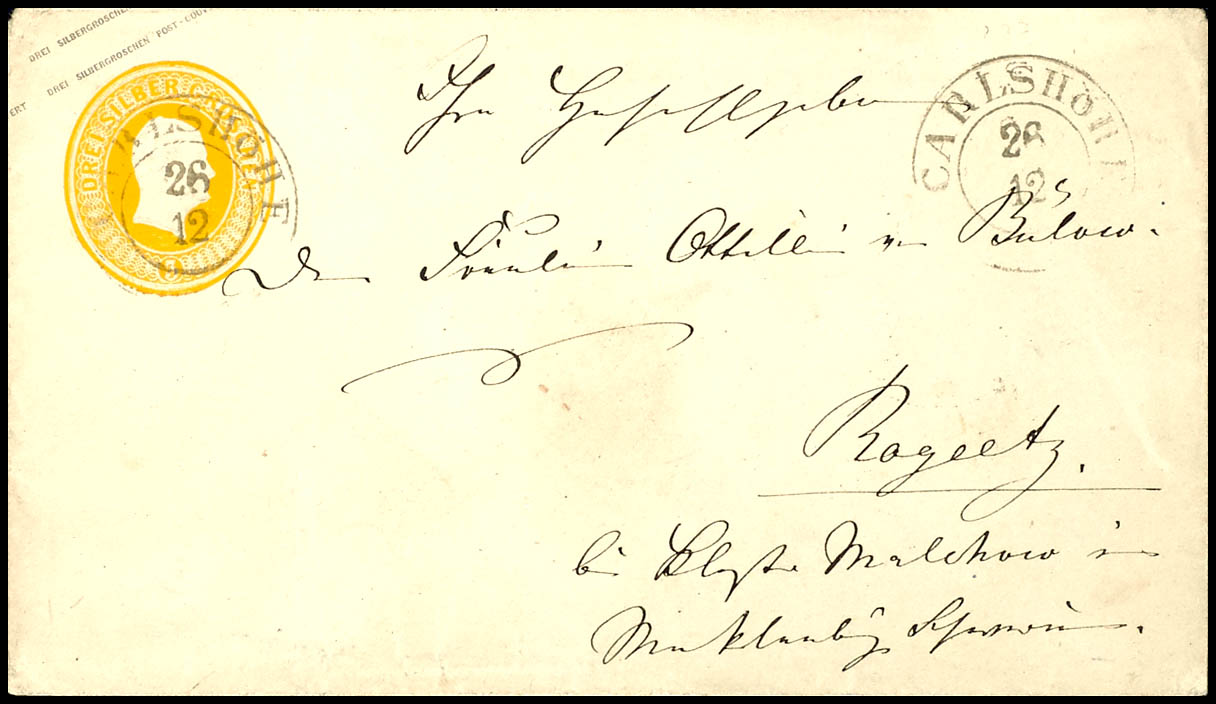 DREI SILBERGROSCHEN
DREI SILBERGROSCHEN POST-COUV
ERT
DREI SILBER GROSCHEN
3
CARLSHÖHE
26
12
CARLSHÖHE
26
12
Ihro Hochwohlgeboren
Dem Fräulein Ottilie von Bülow.
Rogeetz.
bei Kloster Malchow in
Mecklenburg Schwerin.